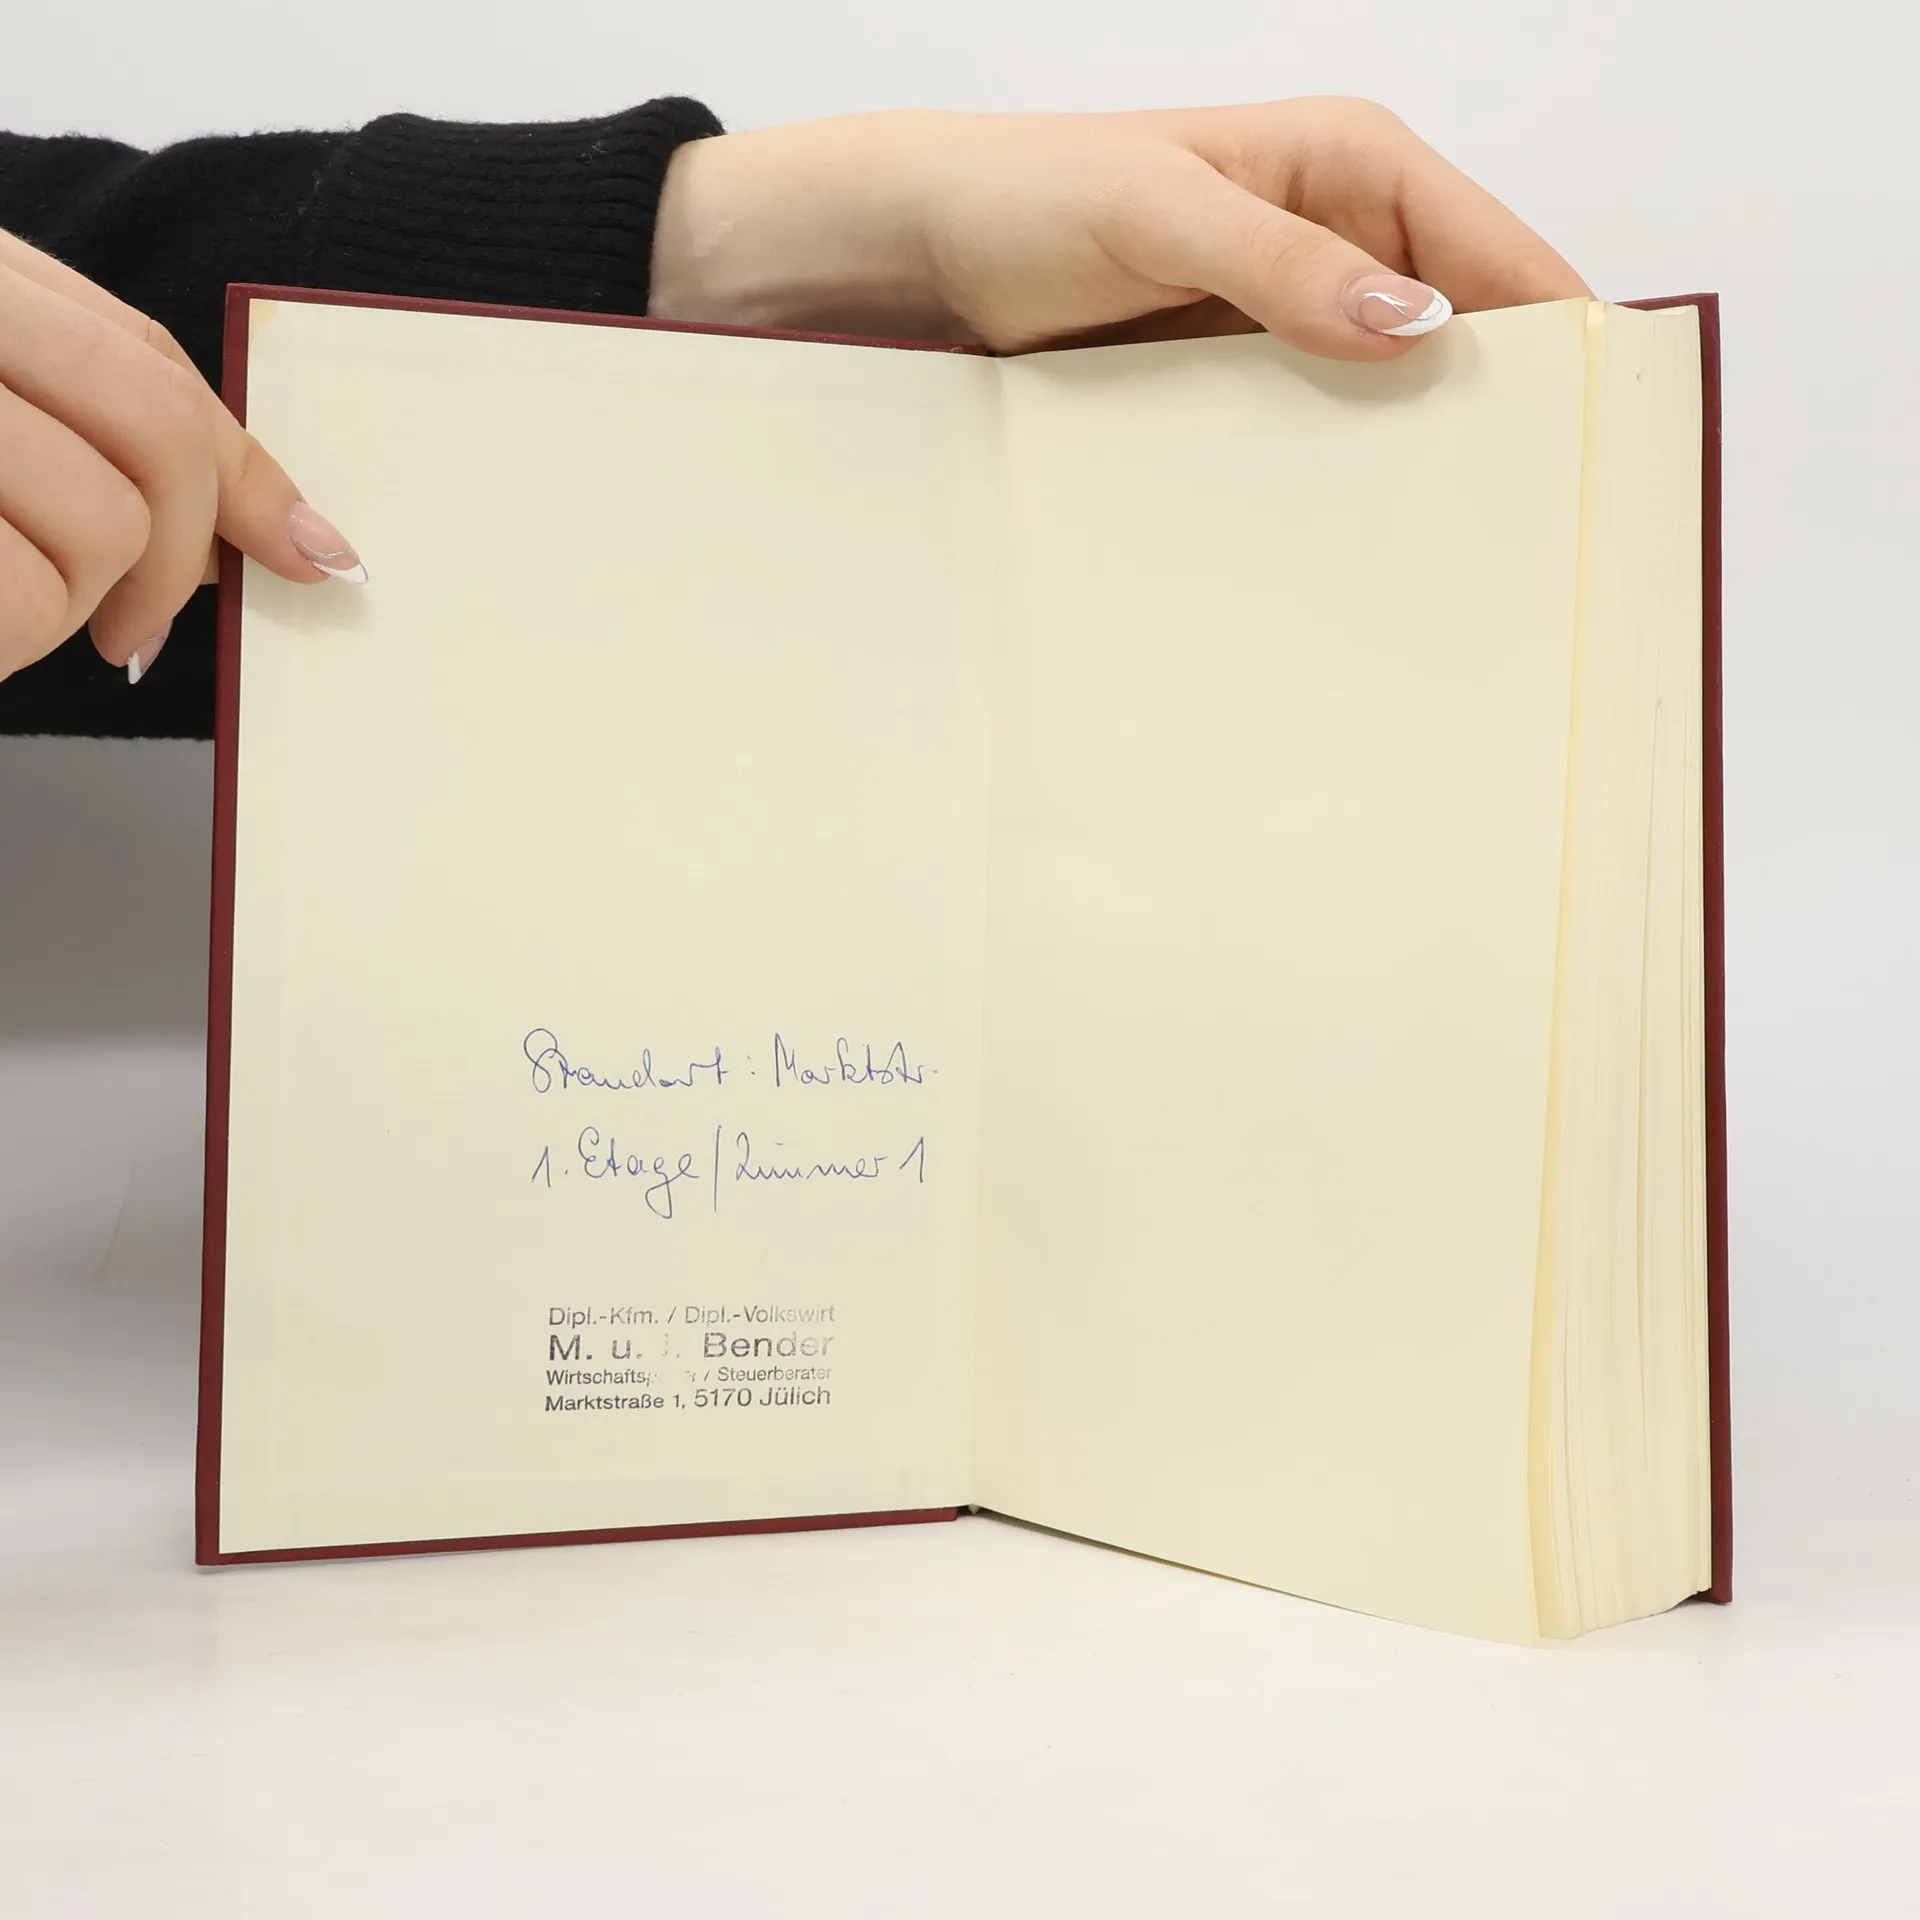 Standort: Marktstr.
1. Etage/Zimmer 1
Dipl.-Kfm. / Dipl.-Volkswirt
M. u. Bender
/ Steuerberater
Marktstraße 1, 5170 Jülich